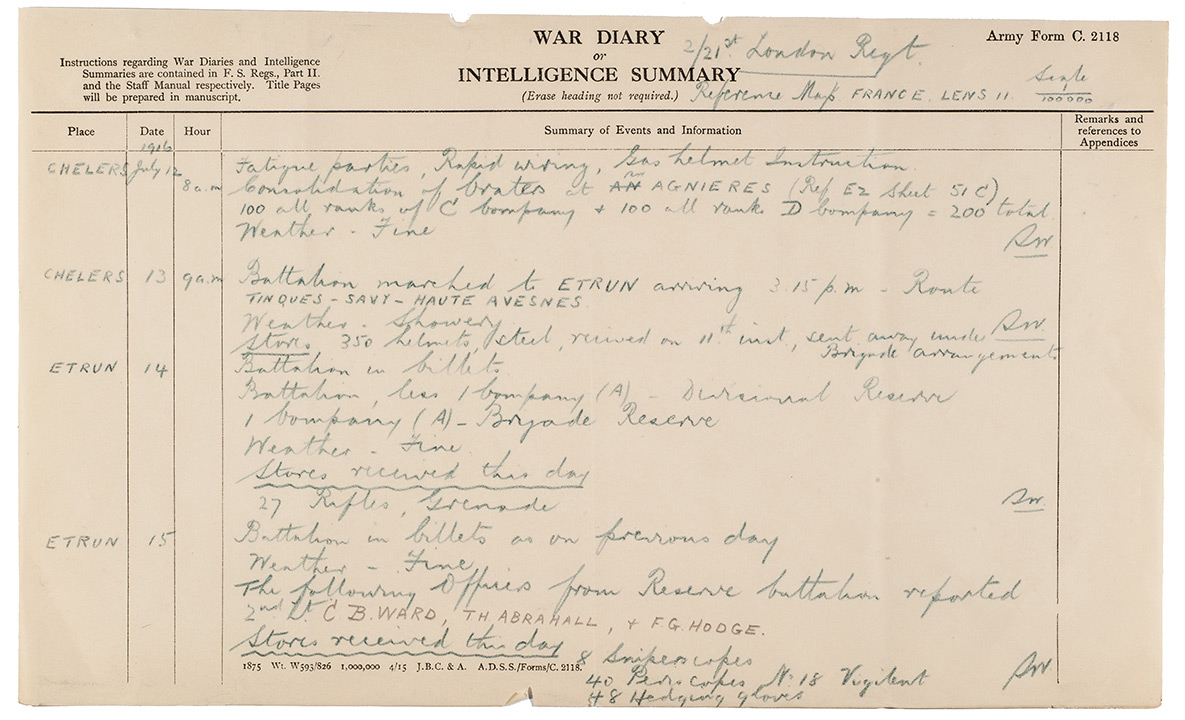 WAR DIARY
or
INTELLIGENCE SUMMARY
(Erase heading not required.)
2/21st London Regt.
Reference Map FRANCE. LENS 11. Scale 1/100000
Army Form C. 2118
Instructions regarding War Diaries and Intelligence
Summaries are contained in F. S. Regs., Part II.
and the Staff Manual respectively. Title Pages
will be prepared in manuscript.
Place Date Hour Summary of Events and Information Remarks and references to Appendices
1916
CHELERS July 12 Fatigue parties, Rapid wiring, Gas helmet Instruction.
8 a.m Consolidation of Crater at AGNIERES (Ref E2 Sheet 51 C)
100 all ranks of C Company + 100 all ranks D Company = 200 total.
Weather - Fine
SW
CHELERS 13 9 a.m Battalion marched to ETRUN arriving 3.15 p.m - Route
TINQUES - SAVY - HAUTE AVESNES.
Weather - Showery SW
Stores 350 helmets, steel, received on 11th inst, sent away under
Brigade arrangements
ETRUN 14 Battalion in billets
Battalion, less 1 Company (A) - Divisional Reserve
1 Company (A) - Brigade Reserve
Weather - Fine
Stores received this day
27 Rifles, Grenade SW
ETRUN 15 Battalion in billets as on previous day
Weather - Fine
The following Officers from Reserve battalion reported
2nd Lt. C B. WARD, T.H. ABRAHALL, + F.G. HODGE.
Stores received this day 8 Sniperscopes
40 Periscopes No 18 Vigilent SW
48 Hedging gloves
1875 Wt. W593/826 1,000,000 4/15 J.B.C. & A. A.D.S.S./Forms/C. 2118.